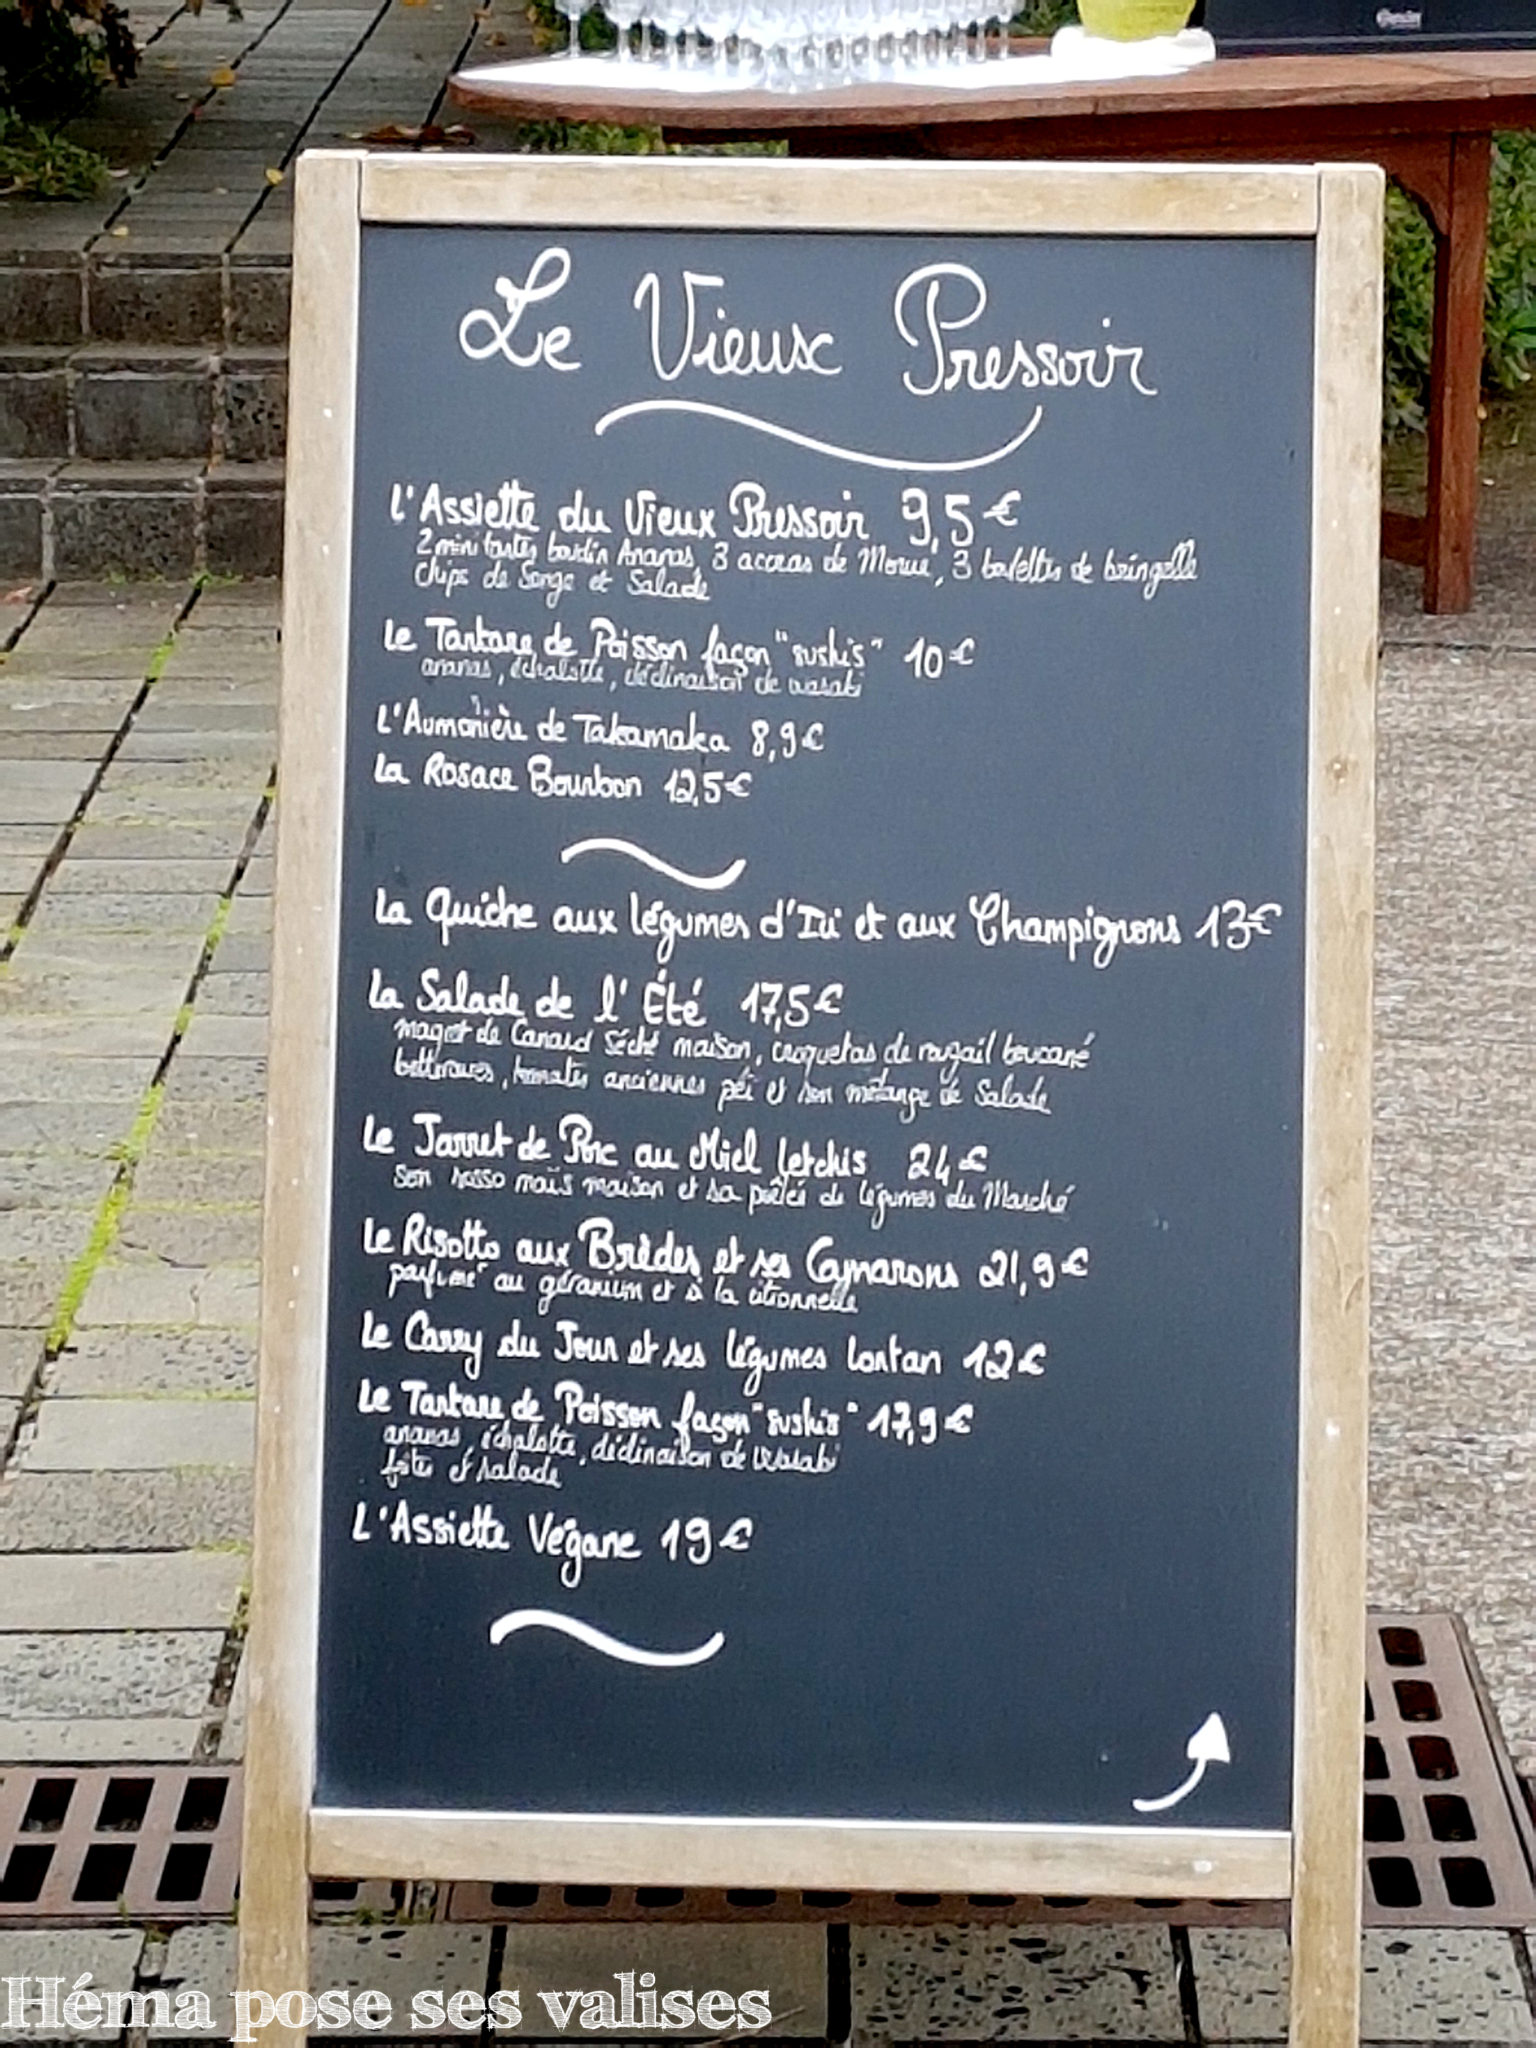 Le Vieux Pressoir
L'Assiette du Vieux Pressoir 9,5€
2 mini tartes boudin Ananas, 3 accras de Morue, 3 boulettes de bringelle
Chips de Songe et Salade
Le Tartare de Poisson façon "sushis" 10€
ananas, échalotte, déclinaison de wasabi
L'Aumônière de Takamaka 8,9€
La Rosace Bourbon 12,5€
La Quiche aux légumes d'Ici et aux Champignons 13€
La Salade de l'Été 17,5€
magret de Canard Séché maison, croquetas de rougail boucané
betteraves, tomates anciennes péi et son mélange de Salade
Le Jarret de Porc au Miel letchis 24€
son sosso maïs maison et sa poêlée de légumes du Marché
Le Risotto aux Brèdes et ses Camarons 21,9€
parfumé au géranium et à la citronnelle
Le Carry du Jour et ses légumes lontan 12€
Le Tartare de Poisson façon "sushis" 17,9€
ananas, échalotte, déclinaison de Wasabi
et salade
L'Assiette Végane 19€
Héma pose ses valises